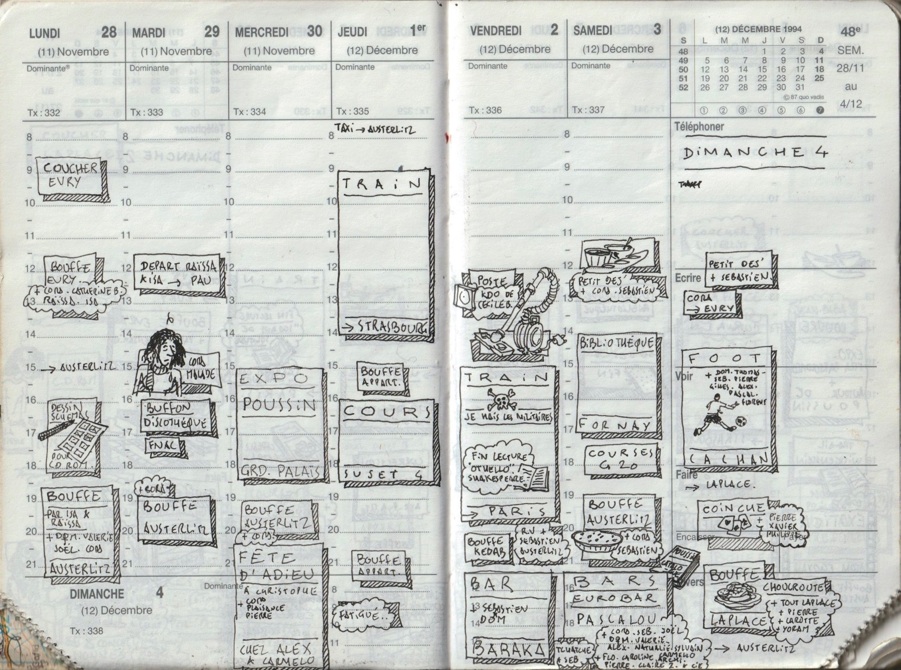 LUNDI 28
(11) Novembre
Dominante
Tx : 332
8
9
COUCHER
EVRY
10
11
12
BOUFFE
EVRY
13
14
15
→ AUSTERLITZ
16
DESSIN
17
POUR
CD ROM.
18
19
BOUFFE
PAR ISA &
RAÏSSA
20
+ DOM. VALERIE
JOËL CORA
21
AUSTERLITZ
DIMANCHE 4
(12) Décembre
Tx : 338
MARDI 29
(11) Novembre
Dominante
Tx : 333
8
9
10
11
12
DEPART RAÏSSA
KISA → PAU
13
14
15
CORA
MALADE
16
BUFFON
DISCOTHÈQUE
17
FNAC
18
19
+ CORA
BOUFFE
20
AUSTERLITZ
21
Dominante
MERCREDI 30
(11) Novembre
Dominante
Tx : 334
8
9
10
11
12
13
14
15
EXPO
POUSSIN
16
17
18
GRD. PALAIS
19
BOUFFE
AUSTERLITZ
+ CORA
20
FÊTE
21
D'ADIEU
À CHRISTOPHE
+ CORA
PLAISANCE
PIERRE
CHEZ ALEX
& CARMELO
JEUDI 1er
(12) Décembre
Dominante
Tx : 335
TAXI → AUSTERLITZ
8
9
TRAIN
10
11
12
13
14
→ STRASBOURG
15
BOUFFE
APPART.
16
COURS
17
18
SUSET 4
19
20
BOUFFE
APPART.
21
FATIGUÉ
8
9
10
11
VENDREDI 2
(12) Décembre
Dominante
Tx : 336
POSTE
KDO DE
CECILE B.
TRAIN
JE HAIS LES MILITAIRES
FIN LECTURE
"OTHELLO"
SHAKESPEARE
→ PARIS
BOUFFE
KEBAB
RV +
SEBASTIEN
AUSTERLITZ
BAR
SEBASTIEN
DOM
BARAKA
SAMEDI 3
(12) Décembre
Dominante
Tx : 337
8
9
10
11
12
PETIT DEJ'
+ CORA. SEBASTIEN
13
14
BIBLIOTHEQUE
15
16
17
FORNAY
18
COURSES
G 20
19
BOUFFE
AUSTERLITZ
20
+ CORA
SEBASTIEN
21
BARS
EUROBAR
PASCALOU
+ CORA. SEB. JOËL
DOM. VALERIE.
(12) DÉCEMBRE 1994
S L M M J V S D
48 1 2 3 4
49 5 6 7 8 9 10 11
50 12 13 14 15 16 17 18
51 19 20 21 22 23 24 25
52 26 27 28 29 30 31
© 87 quo vadis
① ② ③ ④ ⑤ ⑥ ⑦
48e
SEM.
28/11
au
4/12
Téléphoner
DIMANCHE 4
Ecrire
PETIT DEJ'
+ SEBASTIEN
CORA
→ EVRY
Voir
FOOT
+ DOM. THOMAS
SEB. PIERRE
GILLES. ALEX
PASCAL
+ FLORENT
CACHAN
Faire
→ LAPLACE.
COINCHE
+ PIERRE
XAVIER
Encaisser
BOUFFE
LAPLACE
CHOUCROUTE
+ TOUT LAPLACE
+ PIERRE
+ CAROTTE
+ YORAM
→ AUSTERLITZ